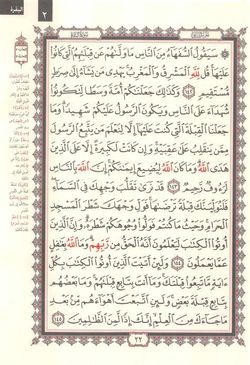 البقرة
٢
سَيَقُولُ السُّفَهَاءُ مِنَ النَّاسِ مَا وَلَّىٰهُمْ عَن قِبْلَتِهِمُ الَّتِي كَانُوا
عَلَيْهَا قُل لِّلَّهِ الْمَشْرِقُ وَالْمَغْرِبُ يَهْدِي مَن يَشَاءُ إِلَىٰ صِرَٰطٍ
مُّسْتَقِيمٍ ١٤٢ وَكَذَٰلِكَ جَعَلْنَٰكُمْ أُمَّةً وَسَطًا لِّتَكُونُوا
شُهَدَاءَ عَلَى النَّاسِ وَيَكُونَ الرَّسُولُ عَلَيْكُمْ شَهِيدًا وَمَا
جَعَلْنَا الْقِبْلَةَ الَّتِي كُنتَ عَلَيْهَا إِلَّا لِنَعْلَمَ مَن يَتَّبِعُ الرَّسُولَ
مِمَّن يَنقَلِبُ عَلَىٰ عَقِبَيْهِ وَإِن كَانَتْ لَكَبِيرَةً إِلَّا عَلَى الَّذِينَ
هَدَى اللَّهُ وَمَا كَانَ اللَّهُ لِيُضِيعَ إِيمَٰنَكُمْ إِنَّ اللَّهَ بِالنَّاسِ
لَرَءُوفٌ رَّحِيمٌ ١٤٣ قَدْ نَرَىٰ تَقَلُّبَ وَجْهِكَ فِي السَّمَاءِ
فَلَنُوَلِّيَنَّكَ قِبْلَةً تَرْضَىٰهَا فَوَلِّ وَجْهَكَ شَطْرَ الْمَسْجِدِ
الْحَرَامِ وَحَيْثُ مَا كُنتُمْ فَوَلُّوا وُجُوهَكُمْ شَطْرَهُ وَإِنَّ الَّذِينَ
أُوتُوا الْكِتَٰبَ لَيَعْلَمُونَ أَنَّهُ الْحَقُّ مِن رَّبِّهِمْ وَمَا اللَّهُ بِغَٰفِلٍ
عَمَّا يَعْمَلُونَ ١٤٤ وَلَئِنْ أَتَيْتَ الَّذِينَ أُوتُوا الْكِتَٰبَ بِكُلِّ
ءَايَةٍ مَّا تَبِعُوا قِبْلَتَكَ وَمَا أَنتَ بِتَابِعٍ قِبْلَتَهُمْ وَمَا بَعْضُهُم
بِتَابِعٍ قِبْلَةَ بَعْضٍ وَلَئِنِ اتَّبَعْتَ أَهْوَاءَهُم مِّن بَعْدِ
مَا جَاءَكَ مِنَ الْعِلْمِ إِنَّكَ إِذًا لَّمِنَ الظَّٰلِمِينَ ١٤٥
٢٢